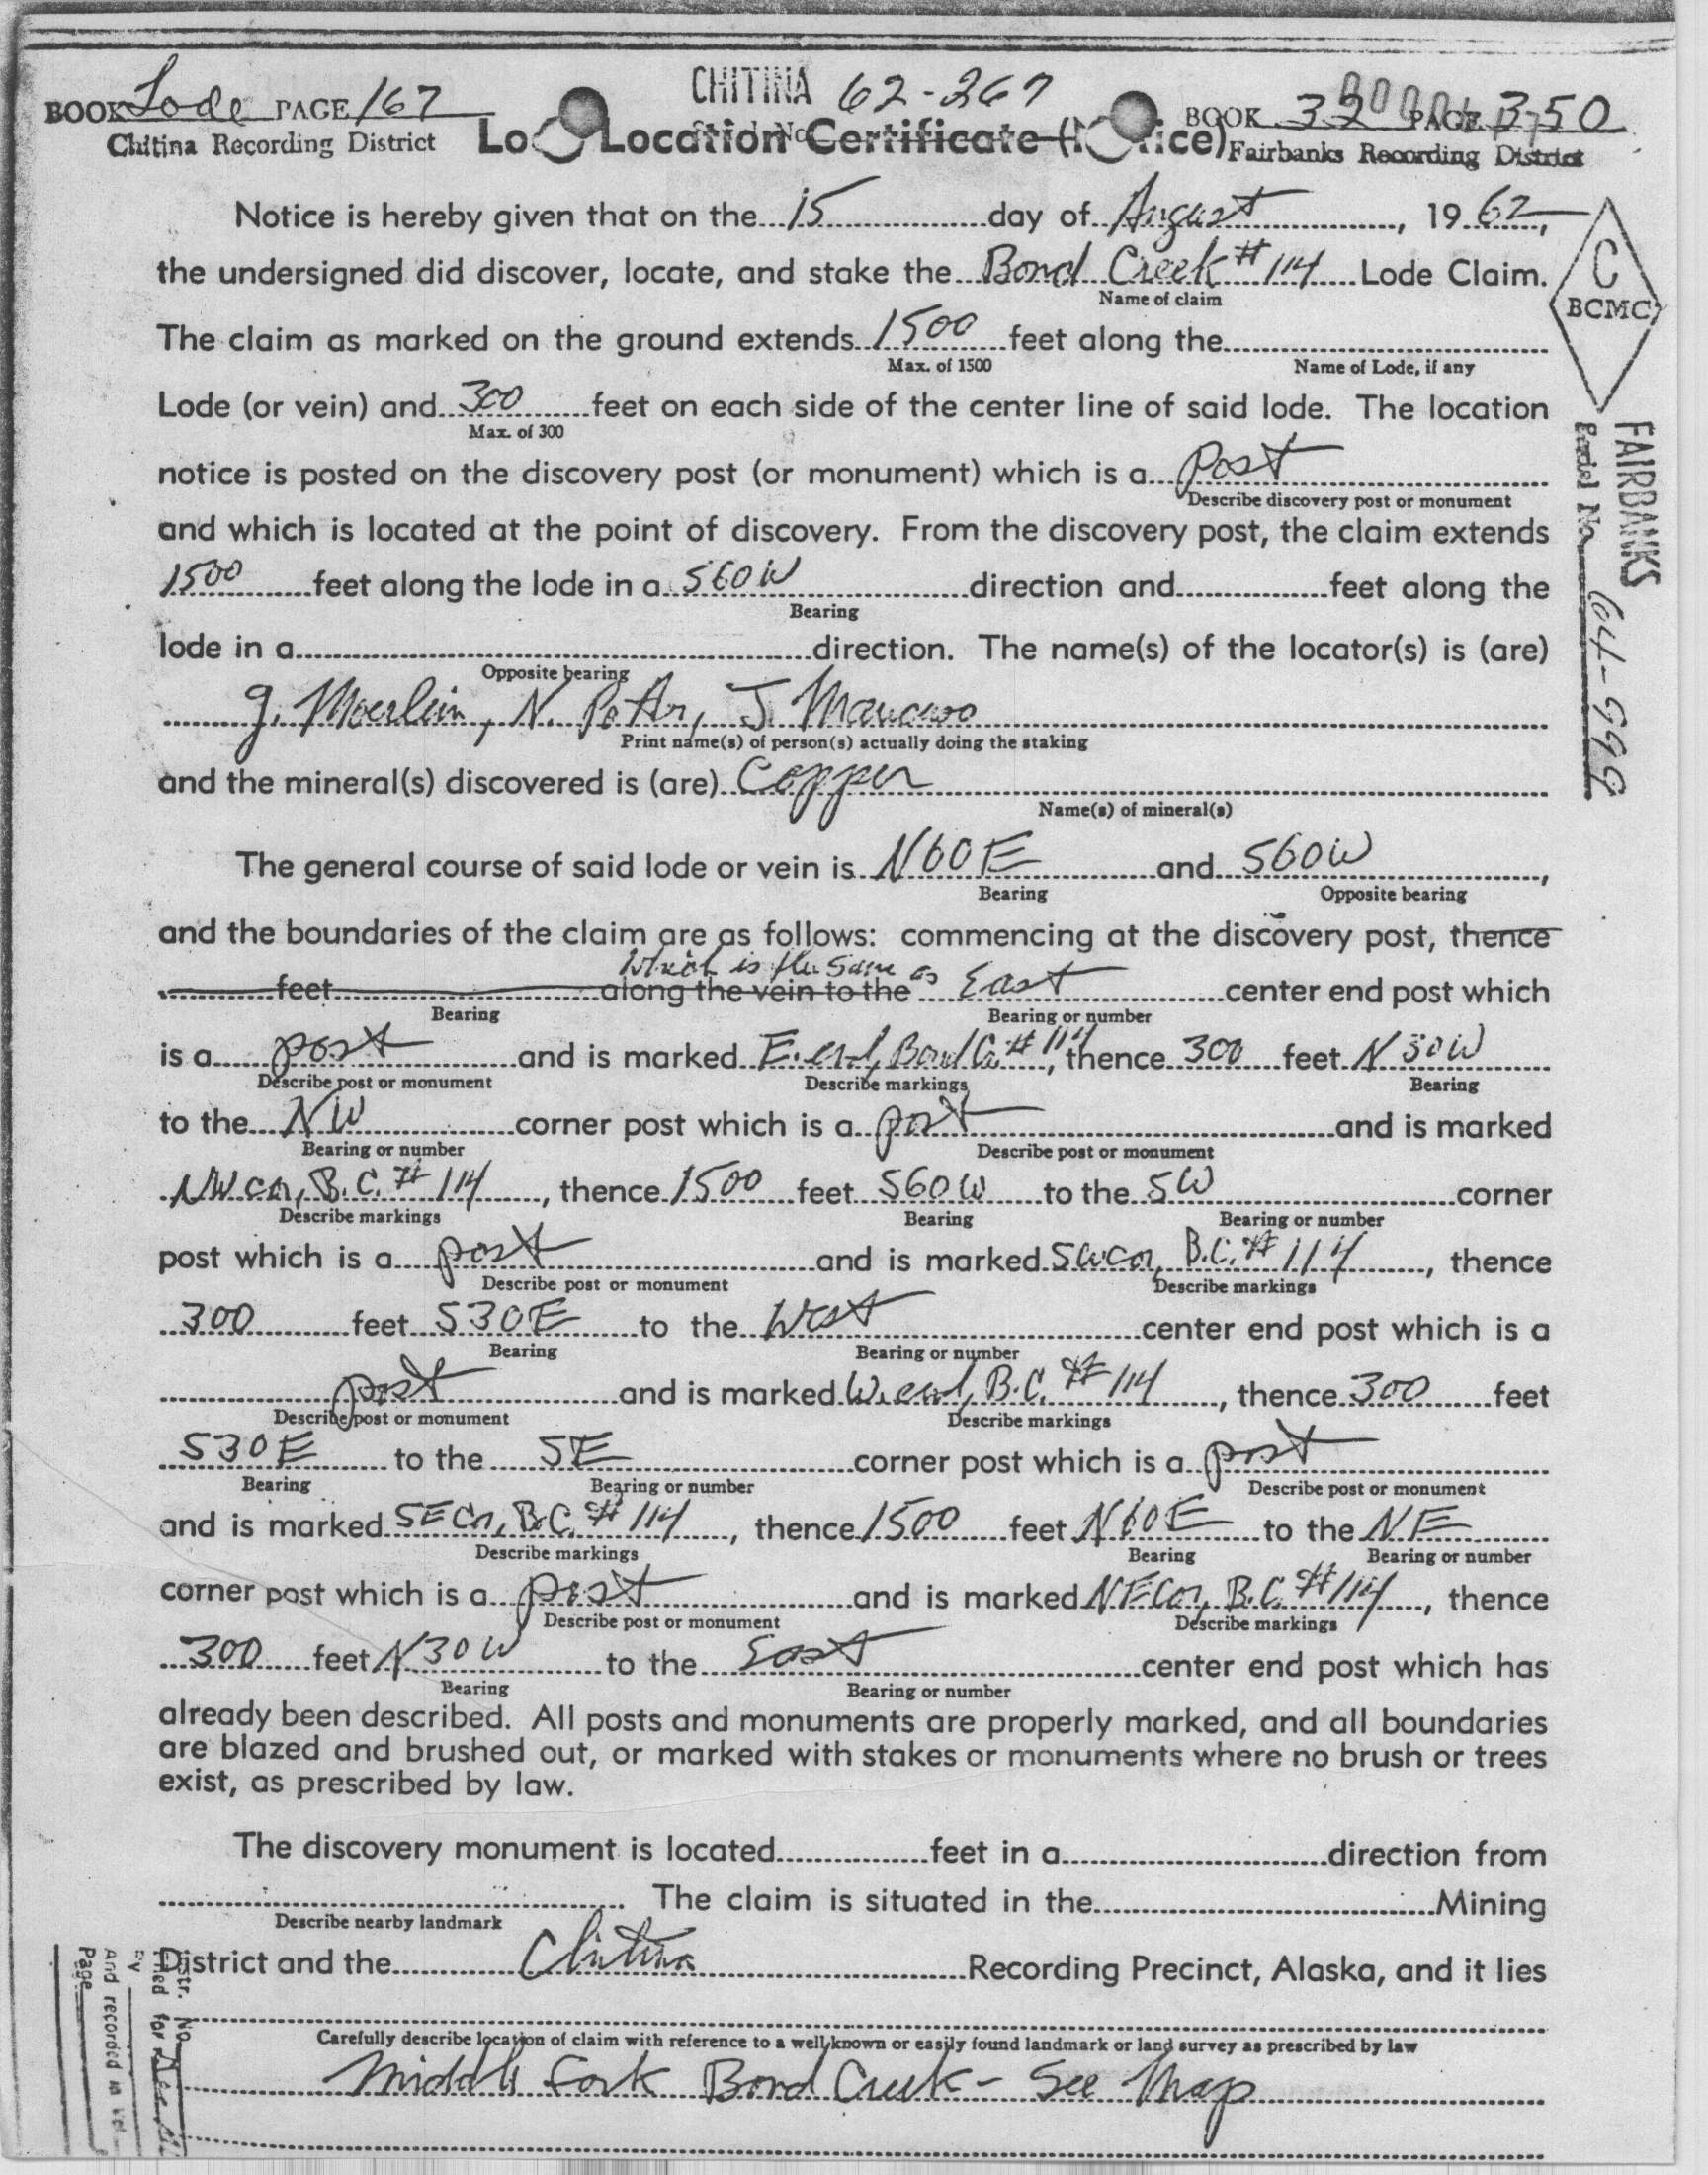 CHITINA 62-267
BOOK Lode PAGE 167 BOOK 32 PAGE 350
Chitina Recording District Location Certificate (Notice) Fairbanks Recording District
Notice is hereby given that on the 15 day of August, 1962,
the undersigned did discover, locate, and stake the Bond Creek #114 Lode Claim.
Name of claim
The claim as marked on the ground extends 1500 feet along the
Max. of 1500 Name of Lode, if any
Lode (or vein) and 300 feet on each side of the center line of said lode. The location
Max. of 300
notice is posted on the discovery post (or monument) which is a Post
Describe discovery post or monument
and which is located at the point of discovery. From the discovery post, the claim extends
1500 feet along the lode in a S60W direction and feet along the
Bearing
lode in a direction. The name(s) of the locator(s) is (are)
Opposite bearing
G. Moerlein, N. Potter, J.
Print name(s) of person(s) actually doing the staking
and the mineral(s) discovered is (are) Copper
Name(s) of mineral(s)
The general course of said lode or vein is N60E and S60W,
Bearing Opposite bearing
and the boundaries of the claim are as follows: commencing at the discovery post, thence
Which is the same as
feet along the vein to the East center end post which
Bearing Bearing or number
is a post and is marked E. end, Bond Cr. #114, thence 300 feet N30W
Describe post or monument Describe markings Bearing
to the NW corner post which is a post and is marked
Bearing or number Describe post or monument
NW cor, B.C. #114, thence 1500 feet S60W to the SW corner
Describe markings Bearing Bearing or number
post which is a post and is marked SW cor, B.C. #114, thence
Describe post or monument Describe markings
300 feet S30E to the West center end post which is a
Bearing Bearing or number
post and is marked W. end, B.C. #114, thence 300 feet
Describe post or monument Describe markings
S30E to the SE corner post which is a post
Bearing Bearing or number Describe post or monument
and is marked SE Cor, B.C. #114, thence 1500 feet N60E to the NE
Describe markings Bearing Bearing or number
corner post which is a post and is marked NE Cor, B.C. #114, thence
Describe post or monument Describe markings
300 feet N30W to the East center end post which has
Bearing Bearing or number
already been described. All posts and monuments are properly marked, and all boundaries
are blazed and brushed out, or marked with stakes or monuments where no brush or trees
exist, as prescribed by law.
The discovery monument is located feet in a direction from
The claim is situated in the Mining
Describe nearby landmark
District and the Chitina Recording Precinct, Alaska, and it lies
Carefully describe location of claim with reference to a well known or easily found landmark or land survey as prescribed by law
Middle Fork Bond Creek - See Map
C
BCMC
FAIRBANKS
Serial No. 64-999
Instr. No.
Filed for
By
And recorded in Vol.
Page